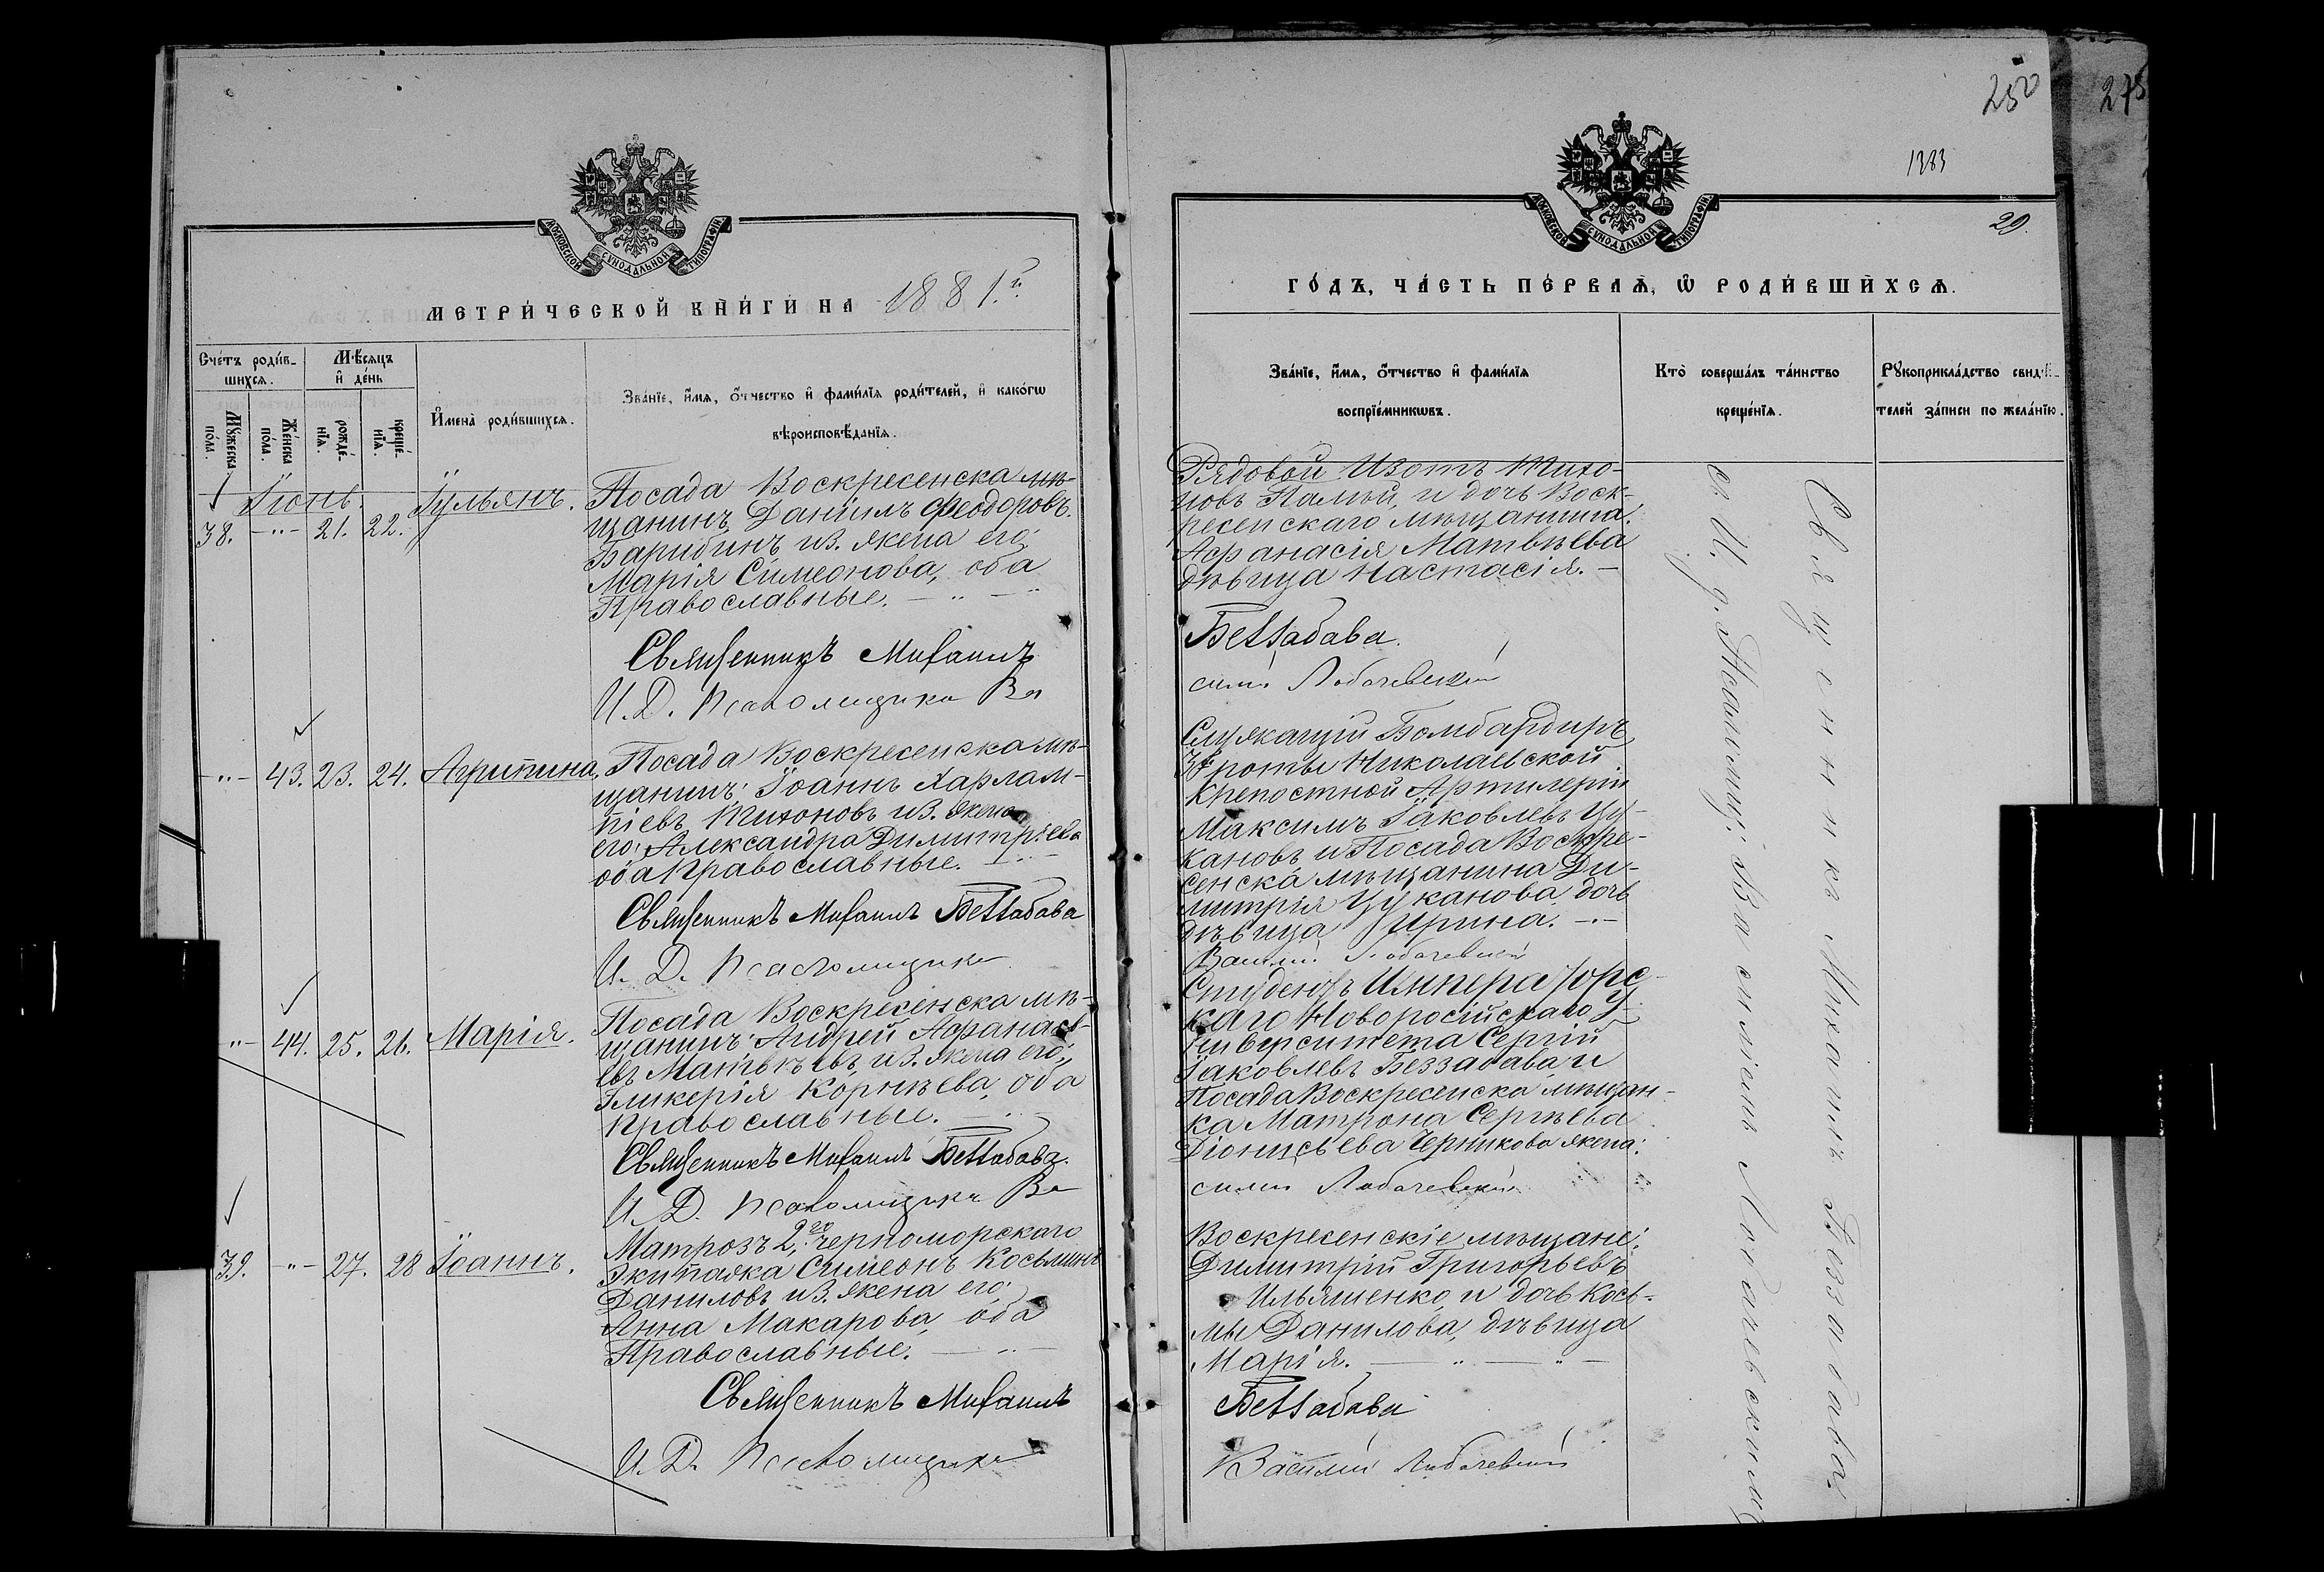 МОСКОВСКОЙ СѴНОДАЛЬНОЙ ТИПОГРАФІИ
МЕТРИ́ЧЕСКОЙ КНИ́ГИ НА 1881.й
Сче́тъ роди́вшихсѧ.
Мѣ́сѧцъ и҆ де́нь
Мꙋ́жеска по́ла.
Же́нска по́ла.
рожде́нїѧ.
креще́нїѧ.
И҆мена̀ роди́вшихсѧ.
Зва́нїе, и҆́мѧ, ѻ҆́тчество и҆ фами́лїѧ роди́телей, и҆ како́гѡ
вѣроисповѣ́данїѧ.
Іюнь.
38. -"- 21. 22. Іульянъ.
Посада Воскресенска мѣ-
щанинъ Даніилъ Феодоровъ
Барибинъ из. жена его
Марія Симеонова, оба
Православные. - " - "
Священникъ Михаилъ
И. Д. Псаломщика Ва
-"- 43. 23. 24. Агрипина.
Посада Воскресенска мѣ-
щанинъ: Іоаннъ Харлам-
піевъ Тихоновъ из. жена
его: Александра Димитріева
оба Православные. - " -
Священникъ Михаилъ Беззабава
И. Д. Псаломщика
-"- 44. 25. 26. Марія.
Посада Воскресенска мѣ-
щанинъ: Андрей Афанась-
евъ Матвѣевъ, из. жена его;
Гликерія Корнѣева, оба
Православные.
Священникъ Михаилъ Беззабава.
И. Д. Псаломщика Ва
39. -"- 27. 28 Іоаннъ.
Матрозъ 2.го Черноморскаго
Экипажа Симеонъ Косьминъ
Даниловъ из. жена его;
Анна Макарова, оба
Православные. - " -
Священникъ Михаилъ
И. Д. Псаломщика
250
275
1383
29.
МОСКОВСКОЙ СѴНОДАЛЬНОЙ ТИПОГРАФІИ
ГО́ДЪ, ЧА́СТЬ ПЕ́РВАѦ, Ѡ҆ РОДИ́ВШИХСѦ.
Зва́нїе, и҆́мѧ, ѻ҆́тчество и҆ фами́лїѧ
воспрїе́мникѡвъ.
Кто̀ соверша́лъ та́инство
креще́нїѧ.
Рꙋкоприкла́дство свидѣ́-
телей за́писи по жела́нїю.
Рядовой Изотъ Тихо-
новъ Палый, и дочь Воск-
ресенскаго мѣщанина
Афанасія Матвѣева
дѣвица Настасія. -
Беззабава.
силій Лобачевскій
Служащій Бомбардиръ
роты Николаевской
Крепостной Артилеріи
Максимъ Іаковлевъ Цу-
кановъ и Посада Воскре-
сенска мѣщанина Ди-
митрія Цуканова дочь
дѣвица Ирина. -"-
Василій Лобачевскій
Студентъ Императорс-
каго Новоросійскаго У-
ниверситета Сергій
Іаковлевъ Беззабава и
Посада Воскресенска мѣщан-
ка Матрона Сергѣева
Діонисьева Черникова жена:
силій Лобачевскій
Воскресенскіе мѣщане:
Димитрій Григорьевъ
Ильяшенко, и дочь Кось-
мы Данилова, дѣвица
Марія. - " - " -
Беззабава
Василій Лобачевскій
Священникъ Михаилъ Беззабава
съ И. д. Псаломщ: Василіемъ Лобачевскимъ